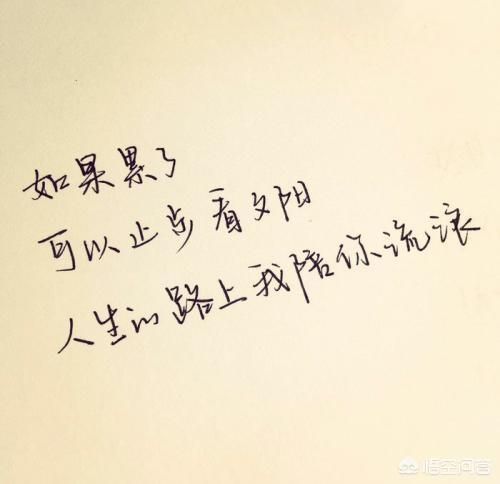 如果累了
可以止步看夕阳
人生的路上我陪你流浪
悟空问答